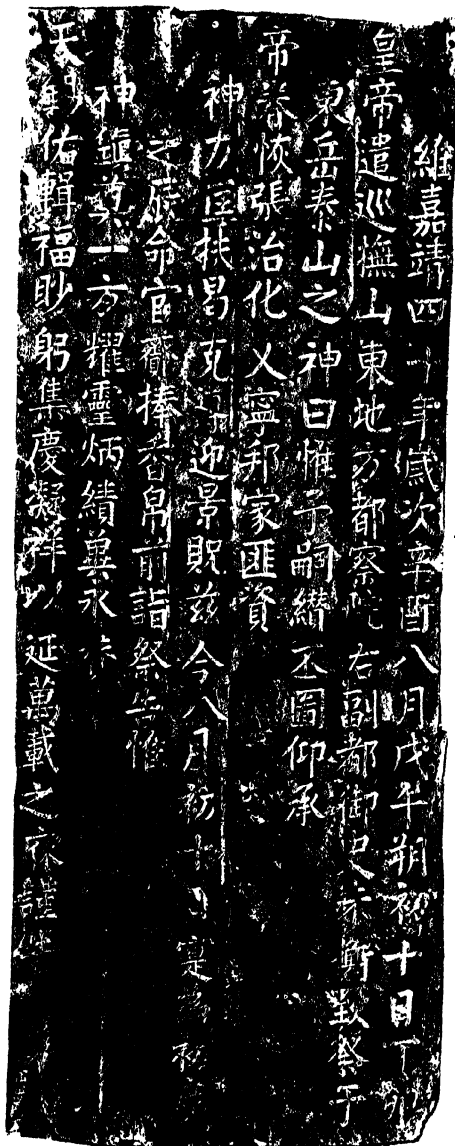 維嘉靖四十年歲次辛酉八月戊午朔初十日丁卯
皇帝遣巡撫山東地方都察院右副都御史朱衡致祭于
東岳泰山之神曰惟予嗣纘丕圖仰承
帝眷恢張治化乂寧邦家匪資
神力匡扶曷克迎景貺茲今八月初十日寔
之辰命官齎捧香帛前詣祭岳惟
神鎮一方耀靈炳績冀永
天佑輯福眇躬集慶凝祥以延萬載之庥謹